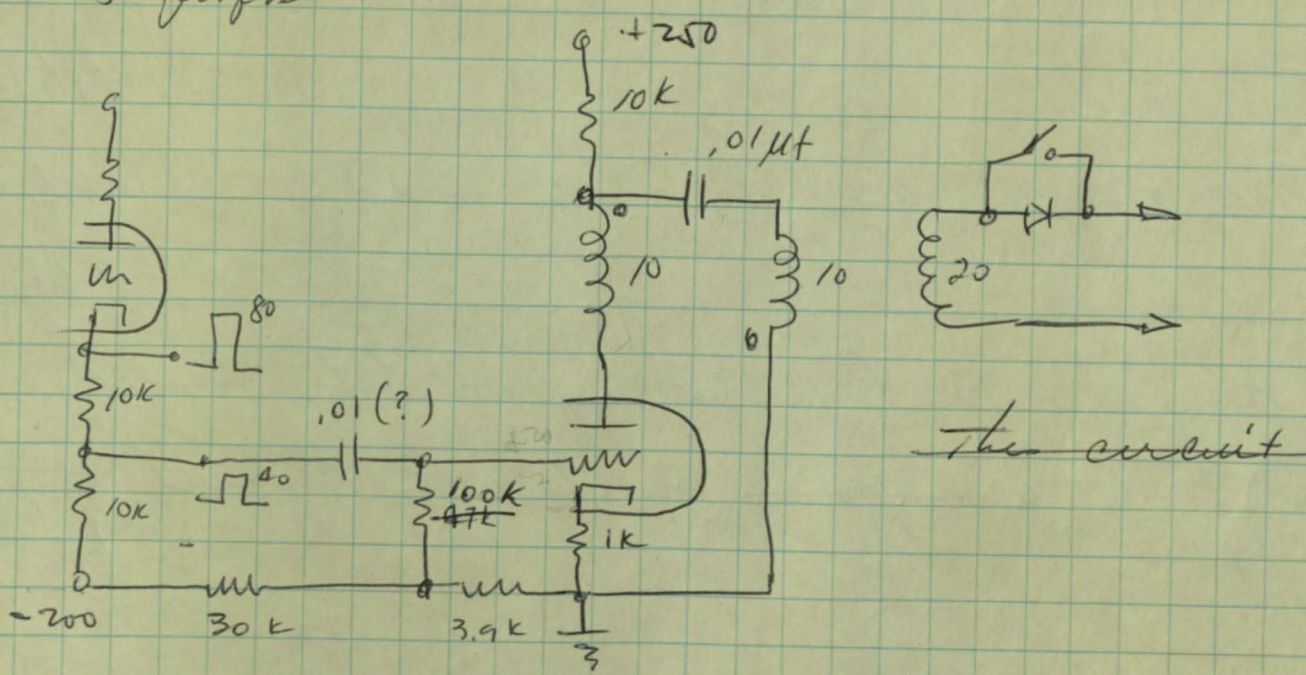 +250
10K
.01 μf
80
10
10
20
10K
.01 (?)
40
10K
100K
47K
1K
The circuit
-200
30 K
3.9K